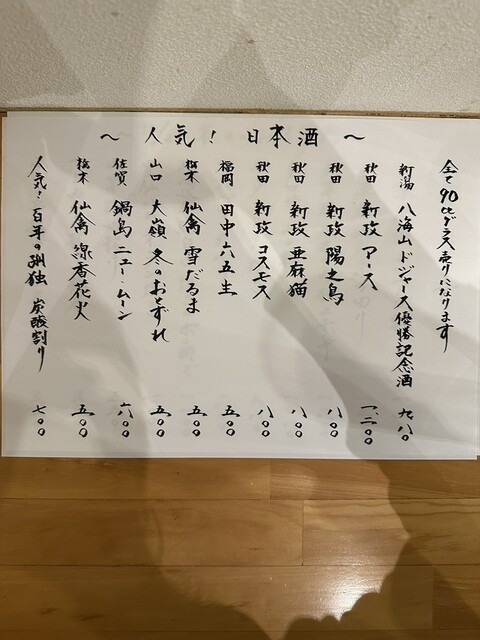 〜 人気! 日本酒 〜
全て90ccグラス売りになります
新潟 八海山ドジャース優勝記念酒 九八〇
秋田 新政 アース 一、二〇〇
秋田 新政 陽乃鳥 八〇〇
秋田 新政 亜麻猫 八〇〇
秋田 新政 コスモス 八〇〇
福岡 田中六五生 五〇〇
栃木 仙禽 雪だるま 五〇〇
山口 大嶺 冬のおとずれ 五〇〇
佐賀 鍋島ニュームーン 六〇〇
栃木 仙禽 線香花火 五〇〇
人気! 百年の孤独 炭酸割り 七〇〇